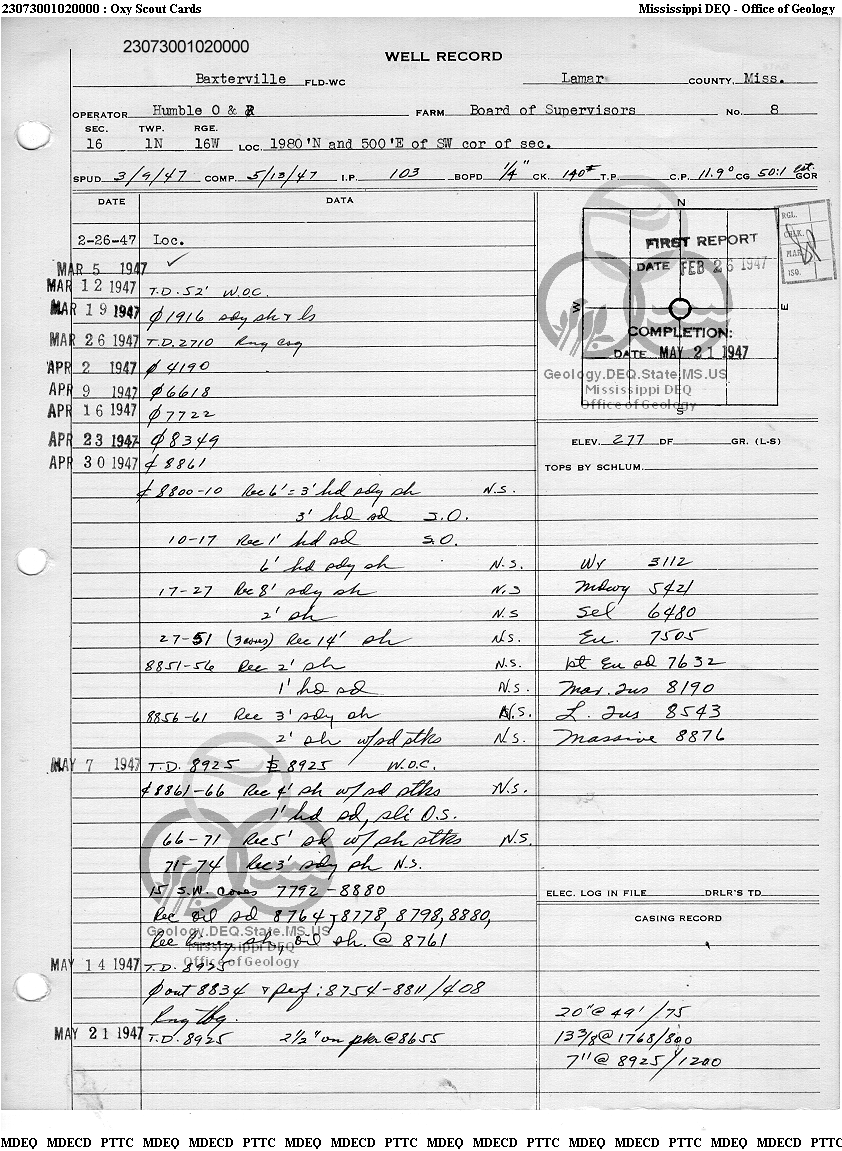 23073001020000 : Oxy Scout Cards Mississippi DEQ - Office of Geology
23073001020000
WELL RECORD
Baxterville FLD-WC Lamar COUNTY, Miss.
OPERATOR Humble O & R FARM Board of Supervisors No. 8
SEC. TWP. RGE.
16 1N 16W LOC. 1980'N and 500'E of SW cor of sec.
SPUD 3/9/47 COMP. 5/13/47 I.P. 103 BOPD 1/4" CK. 140# T.P. C.P. 11.9° CG 50:1 est. GOR
DATE DATA
N
RGL.
CHLK.
MAP
ISO.
2-26-47 Loc.
FIRST REPORT
MAR 5 1947 ✓
DATE FEB 26 1947
MAR 12 1947 T.D. 52' W.O.C.
MAR 19 1947 ⌀1916 sdy sh & ls
W E
MAR 26 1947 T.D. 2710 Rng csg
COMPLETION:
DATE MAY 21 1947
APR 2 1947 ⌀ 4190
Geology.DEQ.State.MS.US
APR 9 1947 ⌀6618
Mississippi DEQ
Office of Geology
APR 16 1947 ⌀7722
S
APR 23 1947 ⌀8349
ELEV. 277 DF GR. (L-S)
APR 30 1947 ¢ 8861
TOPS BY SCHLUM.
¢ 8800-10 Rec 6' = 3' hd sdy sh N.S.
3' hd sd S.O.
10-17 Rec 1' hd sd S.O.
6' hd sdy sh N.S. Wx 3112
17-27 Rec 8' sdy sh N.S Mdwy 5421
2' sh N.S Sel 6480
27-51 (3 cores) Rec 14' sh N.S. Eu. 7505
8851-56 Rec 2' sh N.S. 1st Eu sd 7632
1' hd sd N.S. Mar. Tus 8190
8856-61 Rec 3' sdy sh N.S. L. Tus 8543
2' sh w/sd stks N.S. Massive 8876
MAY 7 1947 T.D. 8925 8925 W.O.C.
¢ 8861-66 Rec 4' sh w/ sd stks N.S.
1' hd sd, sli O.S.
66-71 Rec 5' sd w/ sh stks N.S.
71-74 Rec 3' sdy sh N.S.
15 S.W. cores 7792-8880
ELEC. LOG IN FILE DRLR'S TD
Rec oil sd 8764, 8778, 8798, 8880,
CASING RECORD
Geology.DEQ.State.MS.US
Rec limey sh, oil sh. @ 8761
Mississippi DEQ
Office of Geology
MAY 14 1947 T.D. 8925
⌀ out 8834 & perf: 8754-8811/408
Rng tbg.
20"@ 49'/75
MAY 21 1947 T.D. 8925 2½" on pkr @ 8655
13 3/8 @ 1768/800
7" @ 8925/1200
MDEQ MDECD PTTC MDEQ MDECD PTTC MDEQ MDECD PTTC MDEQ MDECD PTTC MDEQ MDECD PTTC MDEQ MDECD PTTC